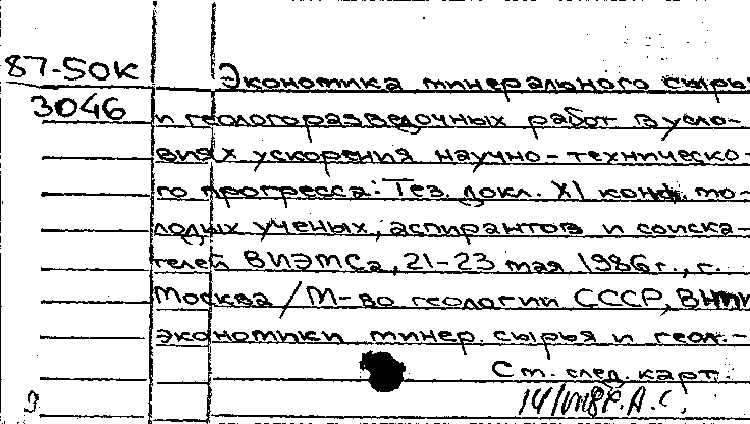 87-50К
3046
Экономика минерального сырь
и геологоразведочных работ в усло-
виях ускорения научно-техническо-
го прогресса: Тез. докл. XI конф. мо-
лодых ученых, аспирантов и соиска-
телей ВИЭМСа, 21-23 мая 1986 г., г.
Москва / М-во геологии СССР, ВНИИ
экономики минер. сырья и геол.-
См. след. карт.